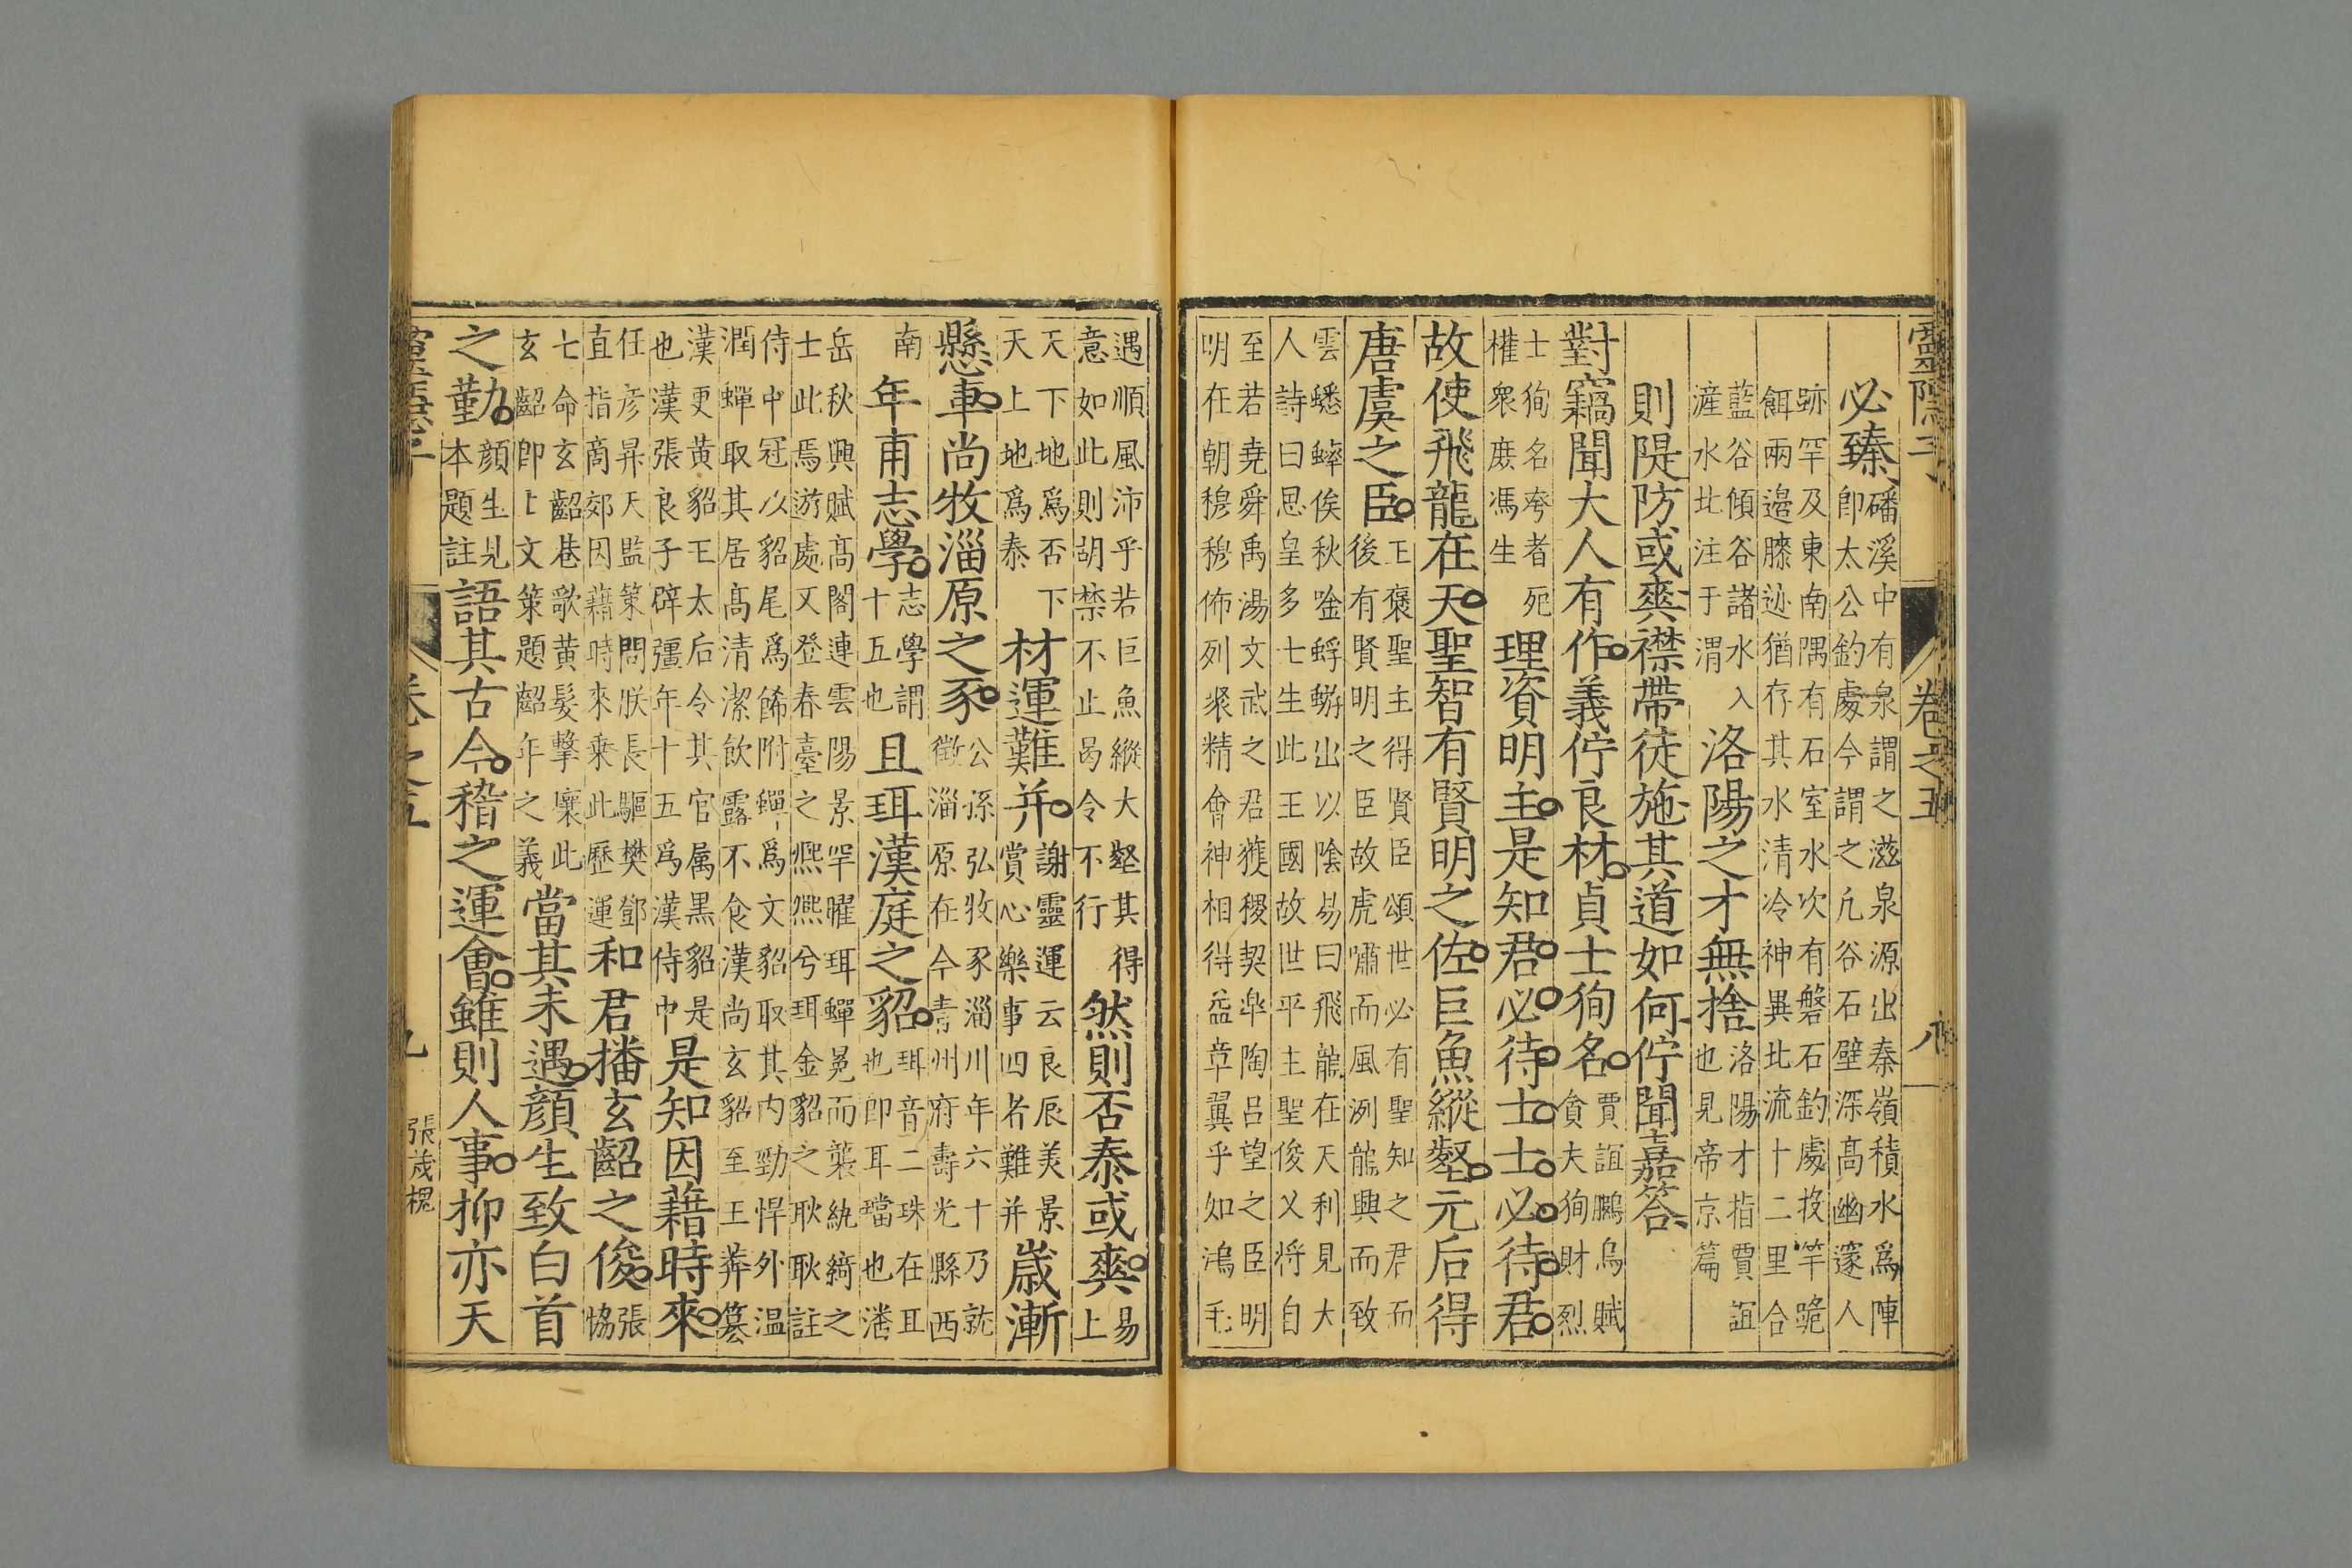 靈隱子 卷之五 八
必臻 磻溪中有泉謂之滋泉源出秦嶺積水爲陣
即太公釣處今謂之凡谷石壁深高幽邃人
跡罕及東南隅有石室水次有磐石釣處投竿跪
餌兩邉膝迹猶存其水清冷神異北流十二里合
藍谷傾谷諸水入
滻水北注于渭
洛陽之才無捨 洛陽才指賈誼
也見帝京篇
則隄防或爽襟帶徒施其道如何佇聞嘉答
對竊聞大人有作義佇良材貞士狥名 賈誼鵩烏賦
貪夫狥財烈
士狥名夸者死
權衆庻馮生
理資明主是知君必待士士必待君
故使飛龍在天聖智有賢明之佐巨魚縱壑元后得
唐虞之臣 王褒聖主得賢臣頌世必有聖知之君而
後有賢明之臣故虎嘯而風洌龍興而致
雲蟋蟀俟秋唫蜉蝣出以陰易曰飛龍在天利見大
人詩曰思皇多士生此王國故世平主聖俊乂將自
至若堯舜禹湯文武之君獲稷契臯陶吕望之臣明
明在朝穆穆佈列聚精會神相得益章翼乎如鴻毛
遇順風沛乎若巨魚縱大壑其得
意如此則胡禁不止曷令不行
然則否泰或爽 易
上
天下地爲否下
天上地爲泰
材運難并 謝靈運云良辰美景
賞心樂事四者難并
歳漸
懸車尚牧淄原之豕 公孫弘牧豕淄川年六十乃就
徵淄原在今青州府壽光縣西
南
年甫志學 志學謂
十五也
且珥漢庭之貂 珥音二珠在耳
也即耳璫也潘
岳秋興賦髙閣連雲陽景罕曜珥蟬冕而襲紈綺之
士此焉游處又登春臺之熈熈兮珥金貂之耿耿註
侍中冠以貂尾爲餙附蟬爲文貂取其内勁悍外温
潤蟬取其居髙清潔飲露不食漢尚玄貂至王莽簒
漢更黄貂王太后令其官属黒貂是
也漢張良子辟彊年十五爲漢侍中
是知因藉時來
任彦昇天監策問朕長驅樊鄧
直指商郊因藉時來乗此歷運
和君播玄齠之俊 張
協
七命玄齠巷歌黄髪擊壤此
玄齠即上文策題齠年之義
當其未遇顔生致白首
之勤 顔生見
本題註
語其古今稽之運會雖則人事抑亦天
卷之五 九 張茂槐